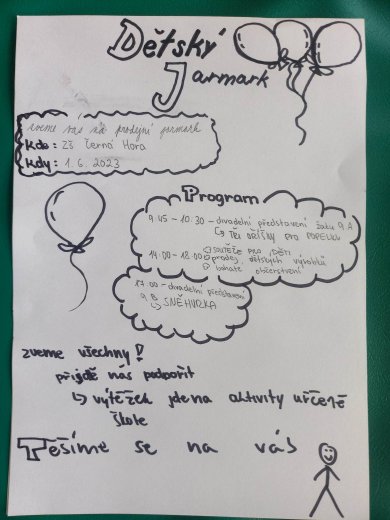 Dětský
Jarmark
zveme vás na prodejní jarmark
Kde: ZŠ Černá Hora
Kdy: 1. 6. 2023
Program
9:45 - 10:30 - divadelní představení žáků 9.A
TŘI OŘÍŠKY PRO POPELKU
SOUTĚŽE PRO DĚTI
14:00 - 18:00 prodej dětských výrobků
bohaté občerstvení
17:00 - divadelní představení
9.B SNĚHURKA
zveme všechny!
přijďě nás podpořit
↳ výtěžek jde na aktivity určené
škole
Těšíme se na vás